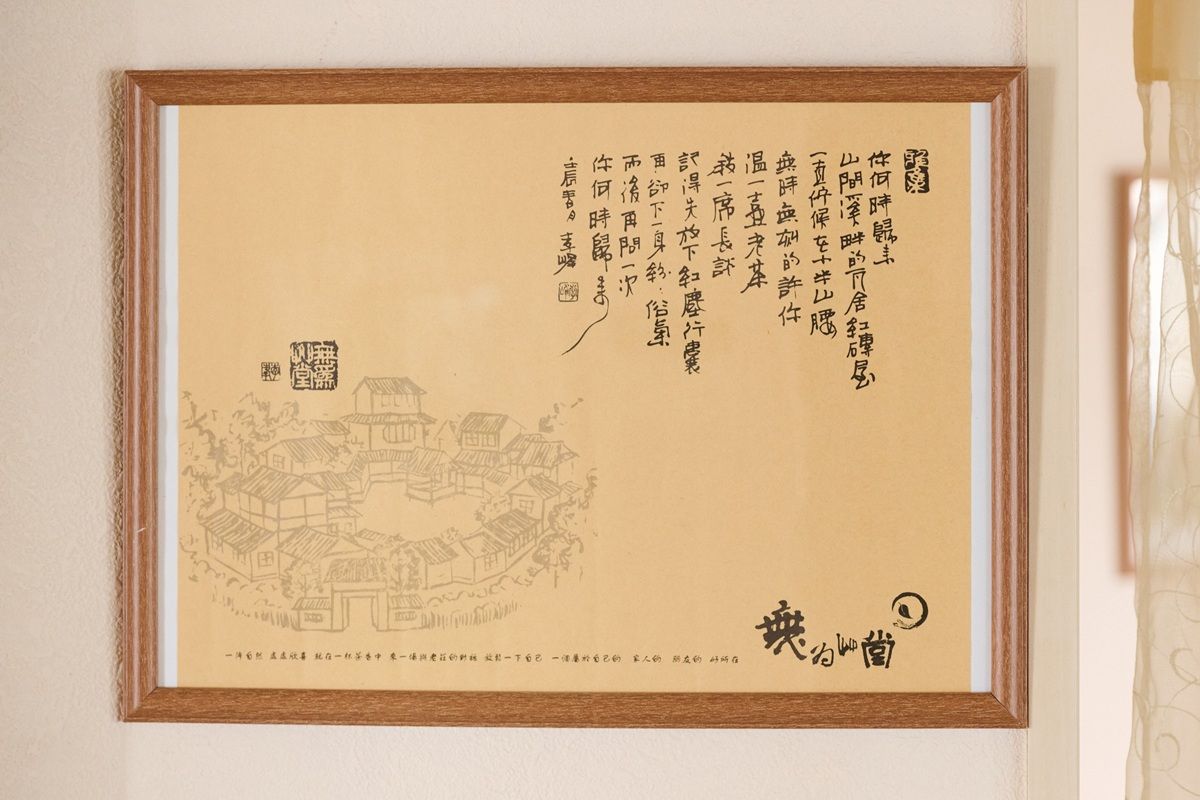 你何時歸來
山間溪畔的瓦舍紅磚屋
一直候在小半山腰
無時無刻的許你
溫一壺老茶
一席長
記得先放下紅塵行囊
再卻下一身紛紛俗氣
而後再問一次
你何時歸來
壬辰春月
無為艸堂
自然 處處欣喜 就在一杯茶香中 來一場與老莊的對話 放鬆一下自己 一個屬於自己的 家人的 朋友的 好所在
無為艸堂